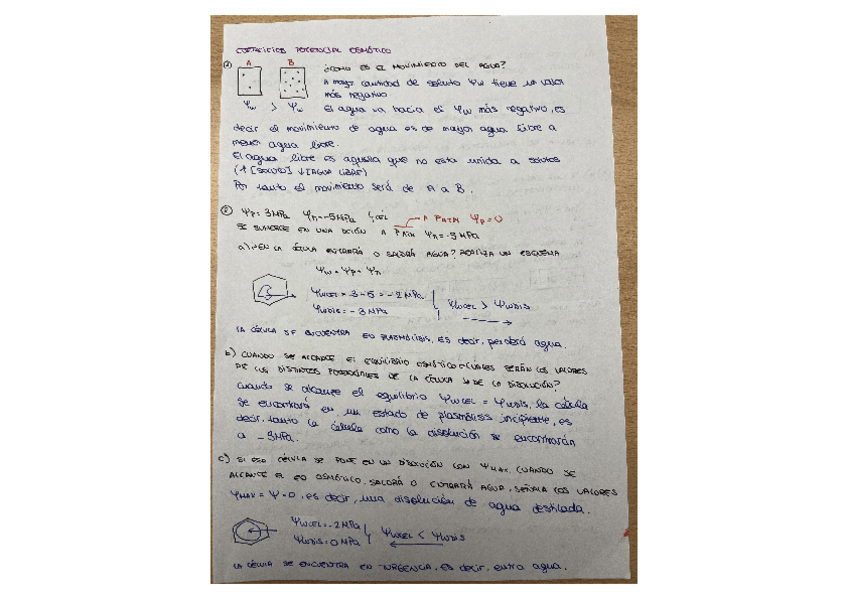 EJERCICIOS POTENCIAL OSMÓTICO
① A B ¿CÓMO ES EL MOVIMIENTO DEL AGUA?
A mayor cantidad de soluto Ψw tiene un valor
más negativo
Ψw > Ψw El agua va hacia el Ψw más negativo, es
decir el movimiento de agua es de mayor agua libre a
menor agua libre.
El agua libre es aquella que no esta unida a solutos
(↑[SOLUTO] ↓[AGUA LIBRE])
Por tanto el movimiento será de A a B.
② Ψp = 3 MPa Ψπ = -5 MPa A PATM Ψp = 0
SE SUMERGE EN UNA DCIÓN A PATM Ψπ = -3 MPa
a) ¿EN LA CÉLULA ENTRARÁ O SALDRÁ AGUA? REALIZA UN ESQUEMA
Ψw = Ψp + Ψπ
ΨWCEL = 3 - 5 = -2 MPa
ΨWDIS = -3 MPa
ΨWCEL > ΨWDIS
LA CÉLULA SE ENCUENTRA EN PLASMÓLISIS, ES decir, perderá agua.
b) CUANDO SE ALCANCE EL EQUILIBRIO OSMÓTICO ¿CUÁLES SERÁN LOS VALORES
DE LOS DISTINTOS POTENCIALES DE LA CÉLULA Y DE LA DISOLUCIÓN?
Cuando se alcance el equilibrio ΨWCEL = ΨWDIS, la célula
se encontrará en un estado de plasmólisis incipiente, es
decir, tanto la célula como la disolución se encontrarán
a -3MPa.
c) SI ESA CÉLULA SE PONE EN UN DISOLUCIÓN CON ΨMAX. CUANDO SE
ALCANCE EL EQ OSMÓTICO, SALDRÁ O ENTRARÁ AGUA. SEÑALA LOS VALORES
ΨMAX = Ψ = 0, es decir, una disolución de agua destilada.
ΨWCEL = -2 MPa
ΨWDIS = 0 MPa
ΨWCEL < ΨWDIS
LA CÉLULA SE ENCUENTRA EN TURGENCIA, ES decir, entra agua.